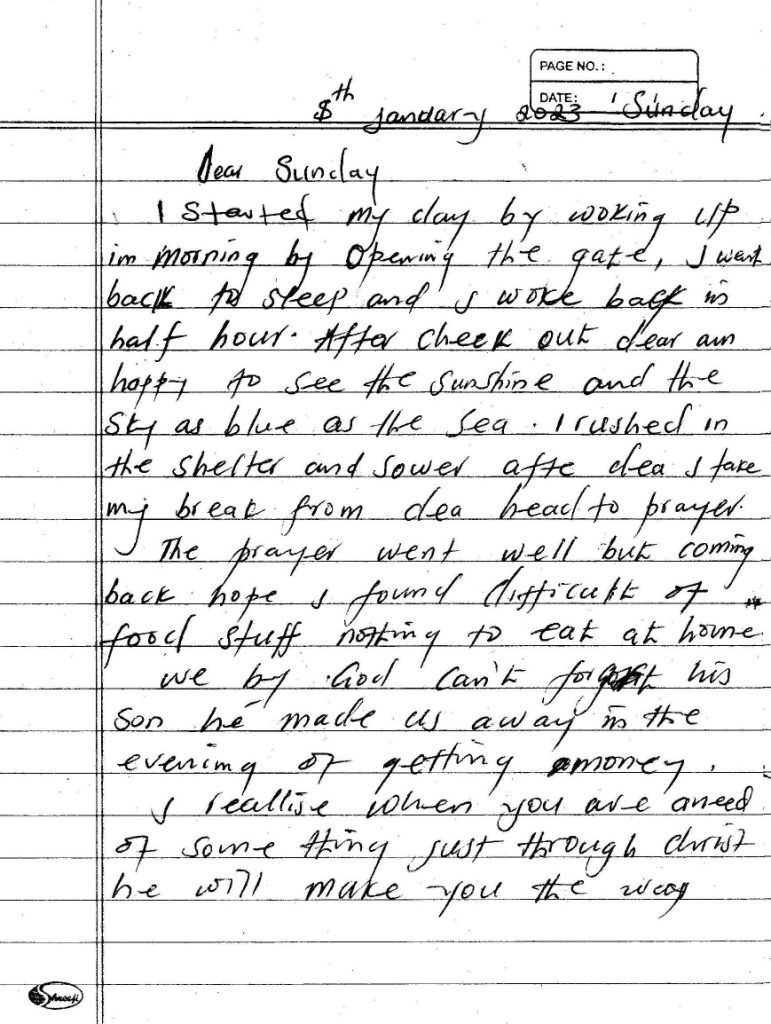 PAGE NO.:
DATE:
8th January 2023 Sunday
Dear Sunday
I started my day by woking up
im morning by opening the gate, I went
back to sleep and I woke back in
half hour. After check out dear am
happy to see the sunshine and the
sky as blue as the sea. I rushed in
the shelter and sower afte dea I take
my break from dea head to prayer.
The prayer went well but coming
back hope I found difficult of
food stuff nothing to eat at home
we by God can't forget his
son he made us away in the
evening of getting money.
I reallise when you are aneed
of some thing just through christ
he will make you the way
Shreeji